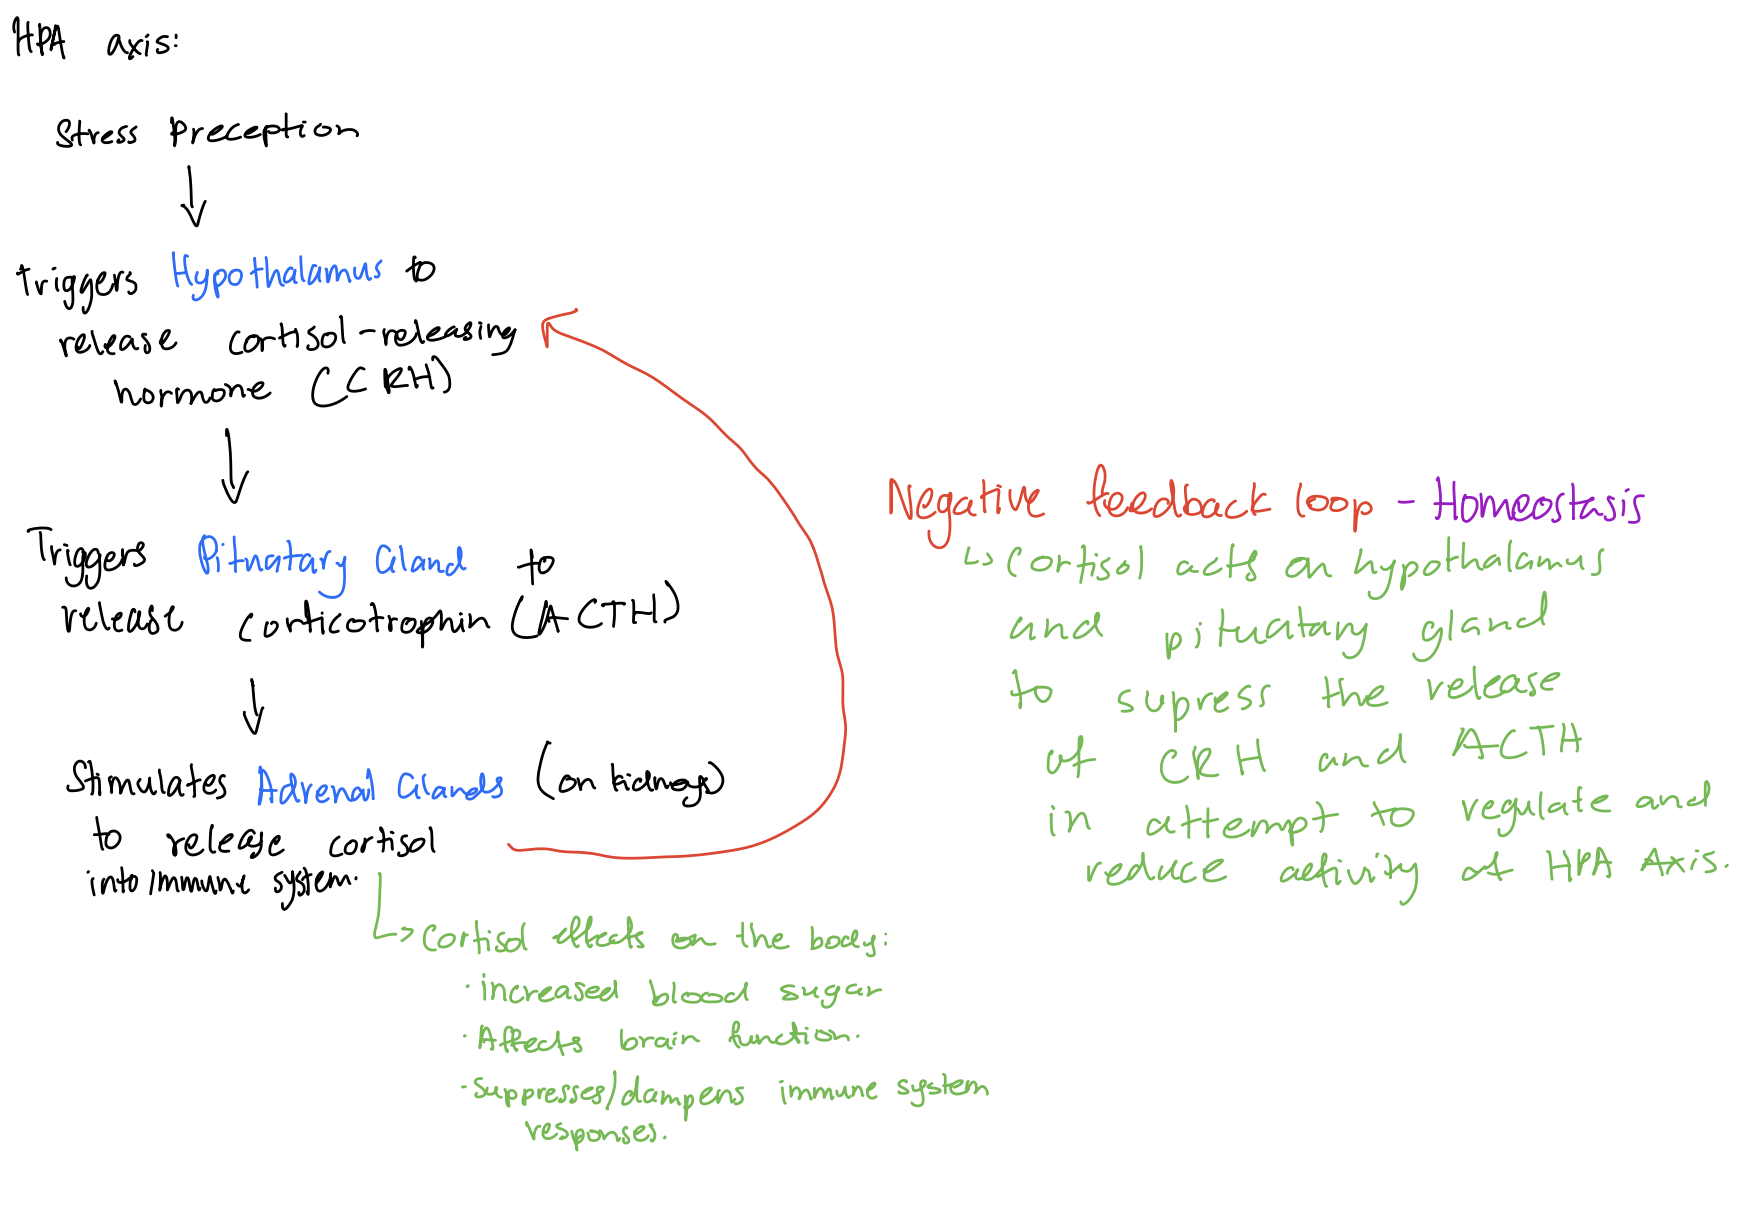 HPA axis:
Stress Preception
Triggers Hypothalamus to
release cortisol-releasing
hormone (CCRH)
Triggers Pituatary Gland to
release corticotrophin (ACTH)
Stimulates Adrenal Glands (on kidneys)
to release cortisol
into immune system.
↳ Cortisol effects on the body:
· increased blood sugar
· Affects brain function.
· Suppresses/dampens immune system
responses.
Negative feedback loop - Homeostasis
↳ Cortisol acts on hypothalamus
and pituatary gland
to supress the release
of CRH and ACTH
in attempt to regulate and
reduce activity of HPA Axis.